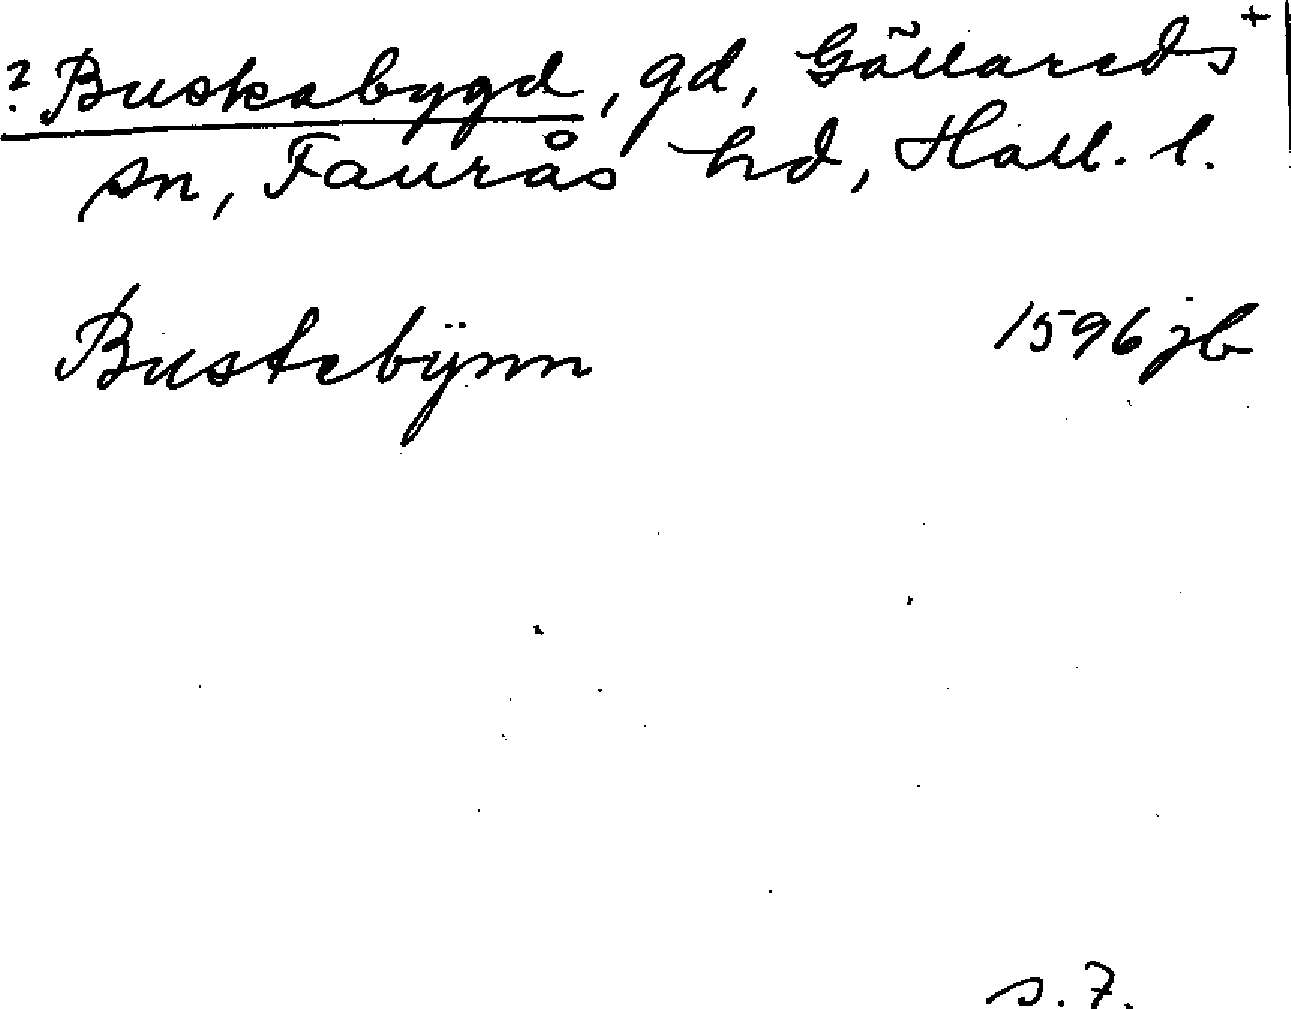 ? Buskabygd, gd, Gällareds +
sn, Faurås hd, Hall. l.
Bustebÿnn 1596 jb
s. 7.